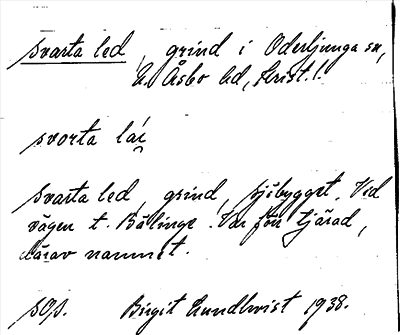 svarta led, grind i Oderljunga sn,
N. Åsbo hd, Krist. l.
svorta lá
svarta led, grind, sjöbygget. Vid
vägen t. Bälinge. Var förr tjärad,
därav namnet.
sgs. Birgit Lundkvist 1938.